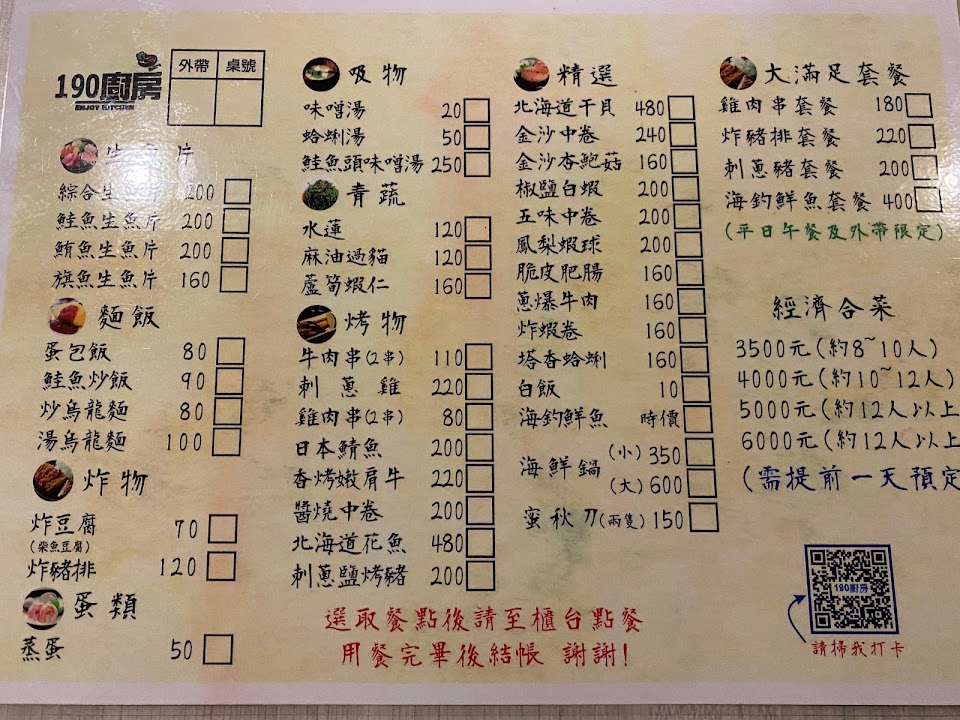 190廚房
ENJOY KITCHEN
外帶 桌號
生魚片
綜合生魚片 200
鮭魚生魚片 200
鮪魚生魚片 200
旗魚生魚片 160
麵飯
蛋包飯 80
鮭魚炒飯 90
炒烏龍麵 80
湯烏龍麵 100
炸物
炸豆腐 70
(柴魚豆腐)
炸豬排 120
蛋類
蒸蛋 50
吸物
味噌湯 20
蛤蜊湯 50
鮭魚頭味噌湯 250
青蔬
水蓮 120
麻油過貓 120
蘆筍蝦仁 160
烤物
牛肉串(2串) 110
刺蔥雞 220
雞肉串(2串) 80
日本鯖魚 200
香烤嫩肩牛 220
醬燒中卷 200
北海道花魚 480
刺蔥鹽烤豬 200
精選
北海道干貝 480
金沙中卷 240
金沙杏鮑菇 160
椒鹽白蝦 200
五味中卷 200
鳳梨蝦球 200
脆皮肥腸 160
蔥爆牛肉 160
炸蝦卷 160
塔香蛤蜊 160
白飯 10
海釣鮮魚 時價
海鮮鍋 (小) 350
(大) 600
蜜秋刀(兩隻) 150
大滿足套餐
雞肉串套餐 180
炸豬排套餐 220
刺蔥豬套餐 200
海釣鮮魚套餐 400
(平日午餐及外帶限定)
經濟合菜
3500元(約8~10人)
4000元(約10~12人)
5000元(約12人以上
6000元(約12人以上
(需提前一天預定
190廚房
請掃我打卡
選取餐點後請至櫃台點餐
用餐完畢後結帳 謝謝!